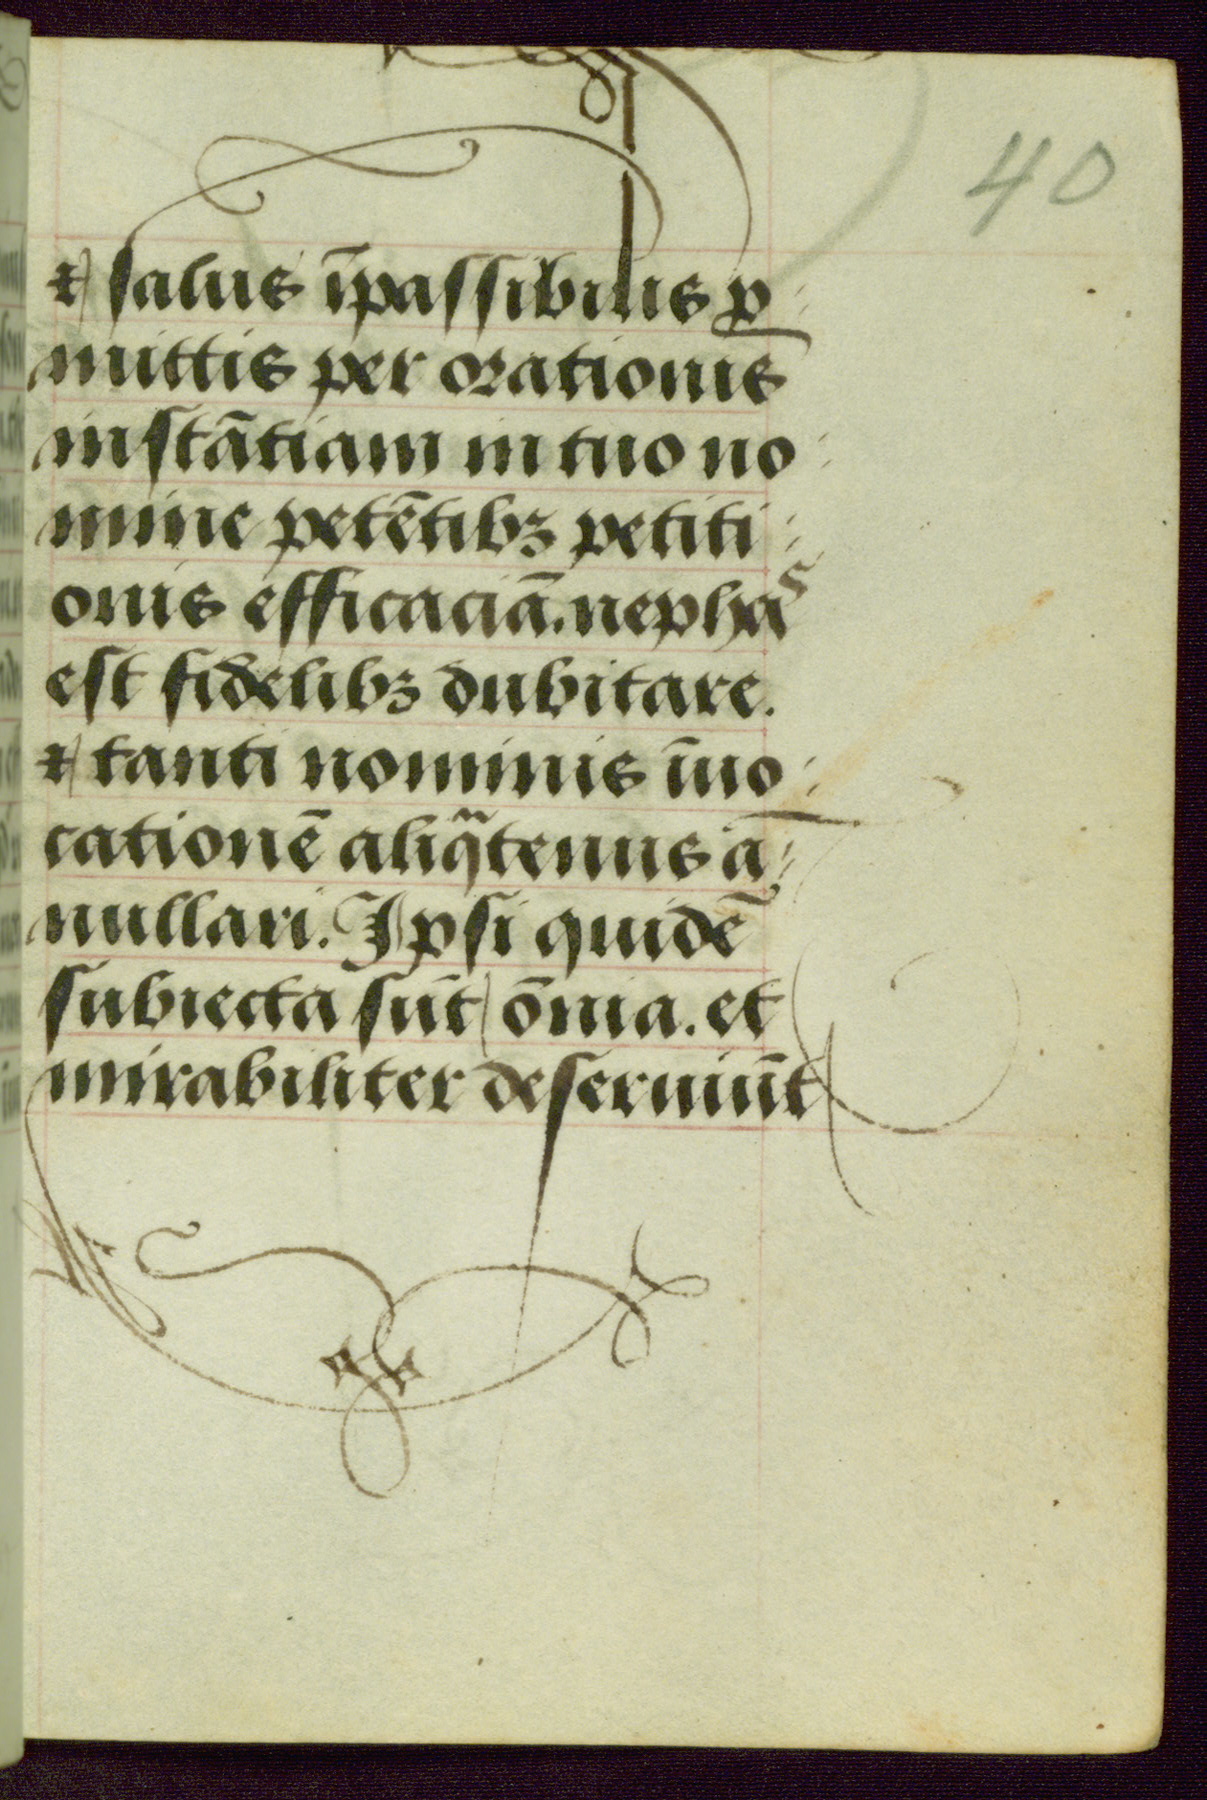 40
⁊ salus īpassibilis ꝓ
mittis per orationis
instātiam in tuo no
mine petētibꝫ petiti
onis efficaciā. nephas
est fidelibꝫ dubitare.
⁊ tanti nominis īuo
cationē aliq̄tenus a
nullari. Ipsi quidē
subiecta sūt ōnia. et
mirabiliter deseruiūt